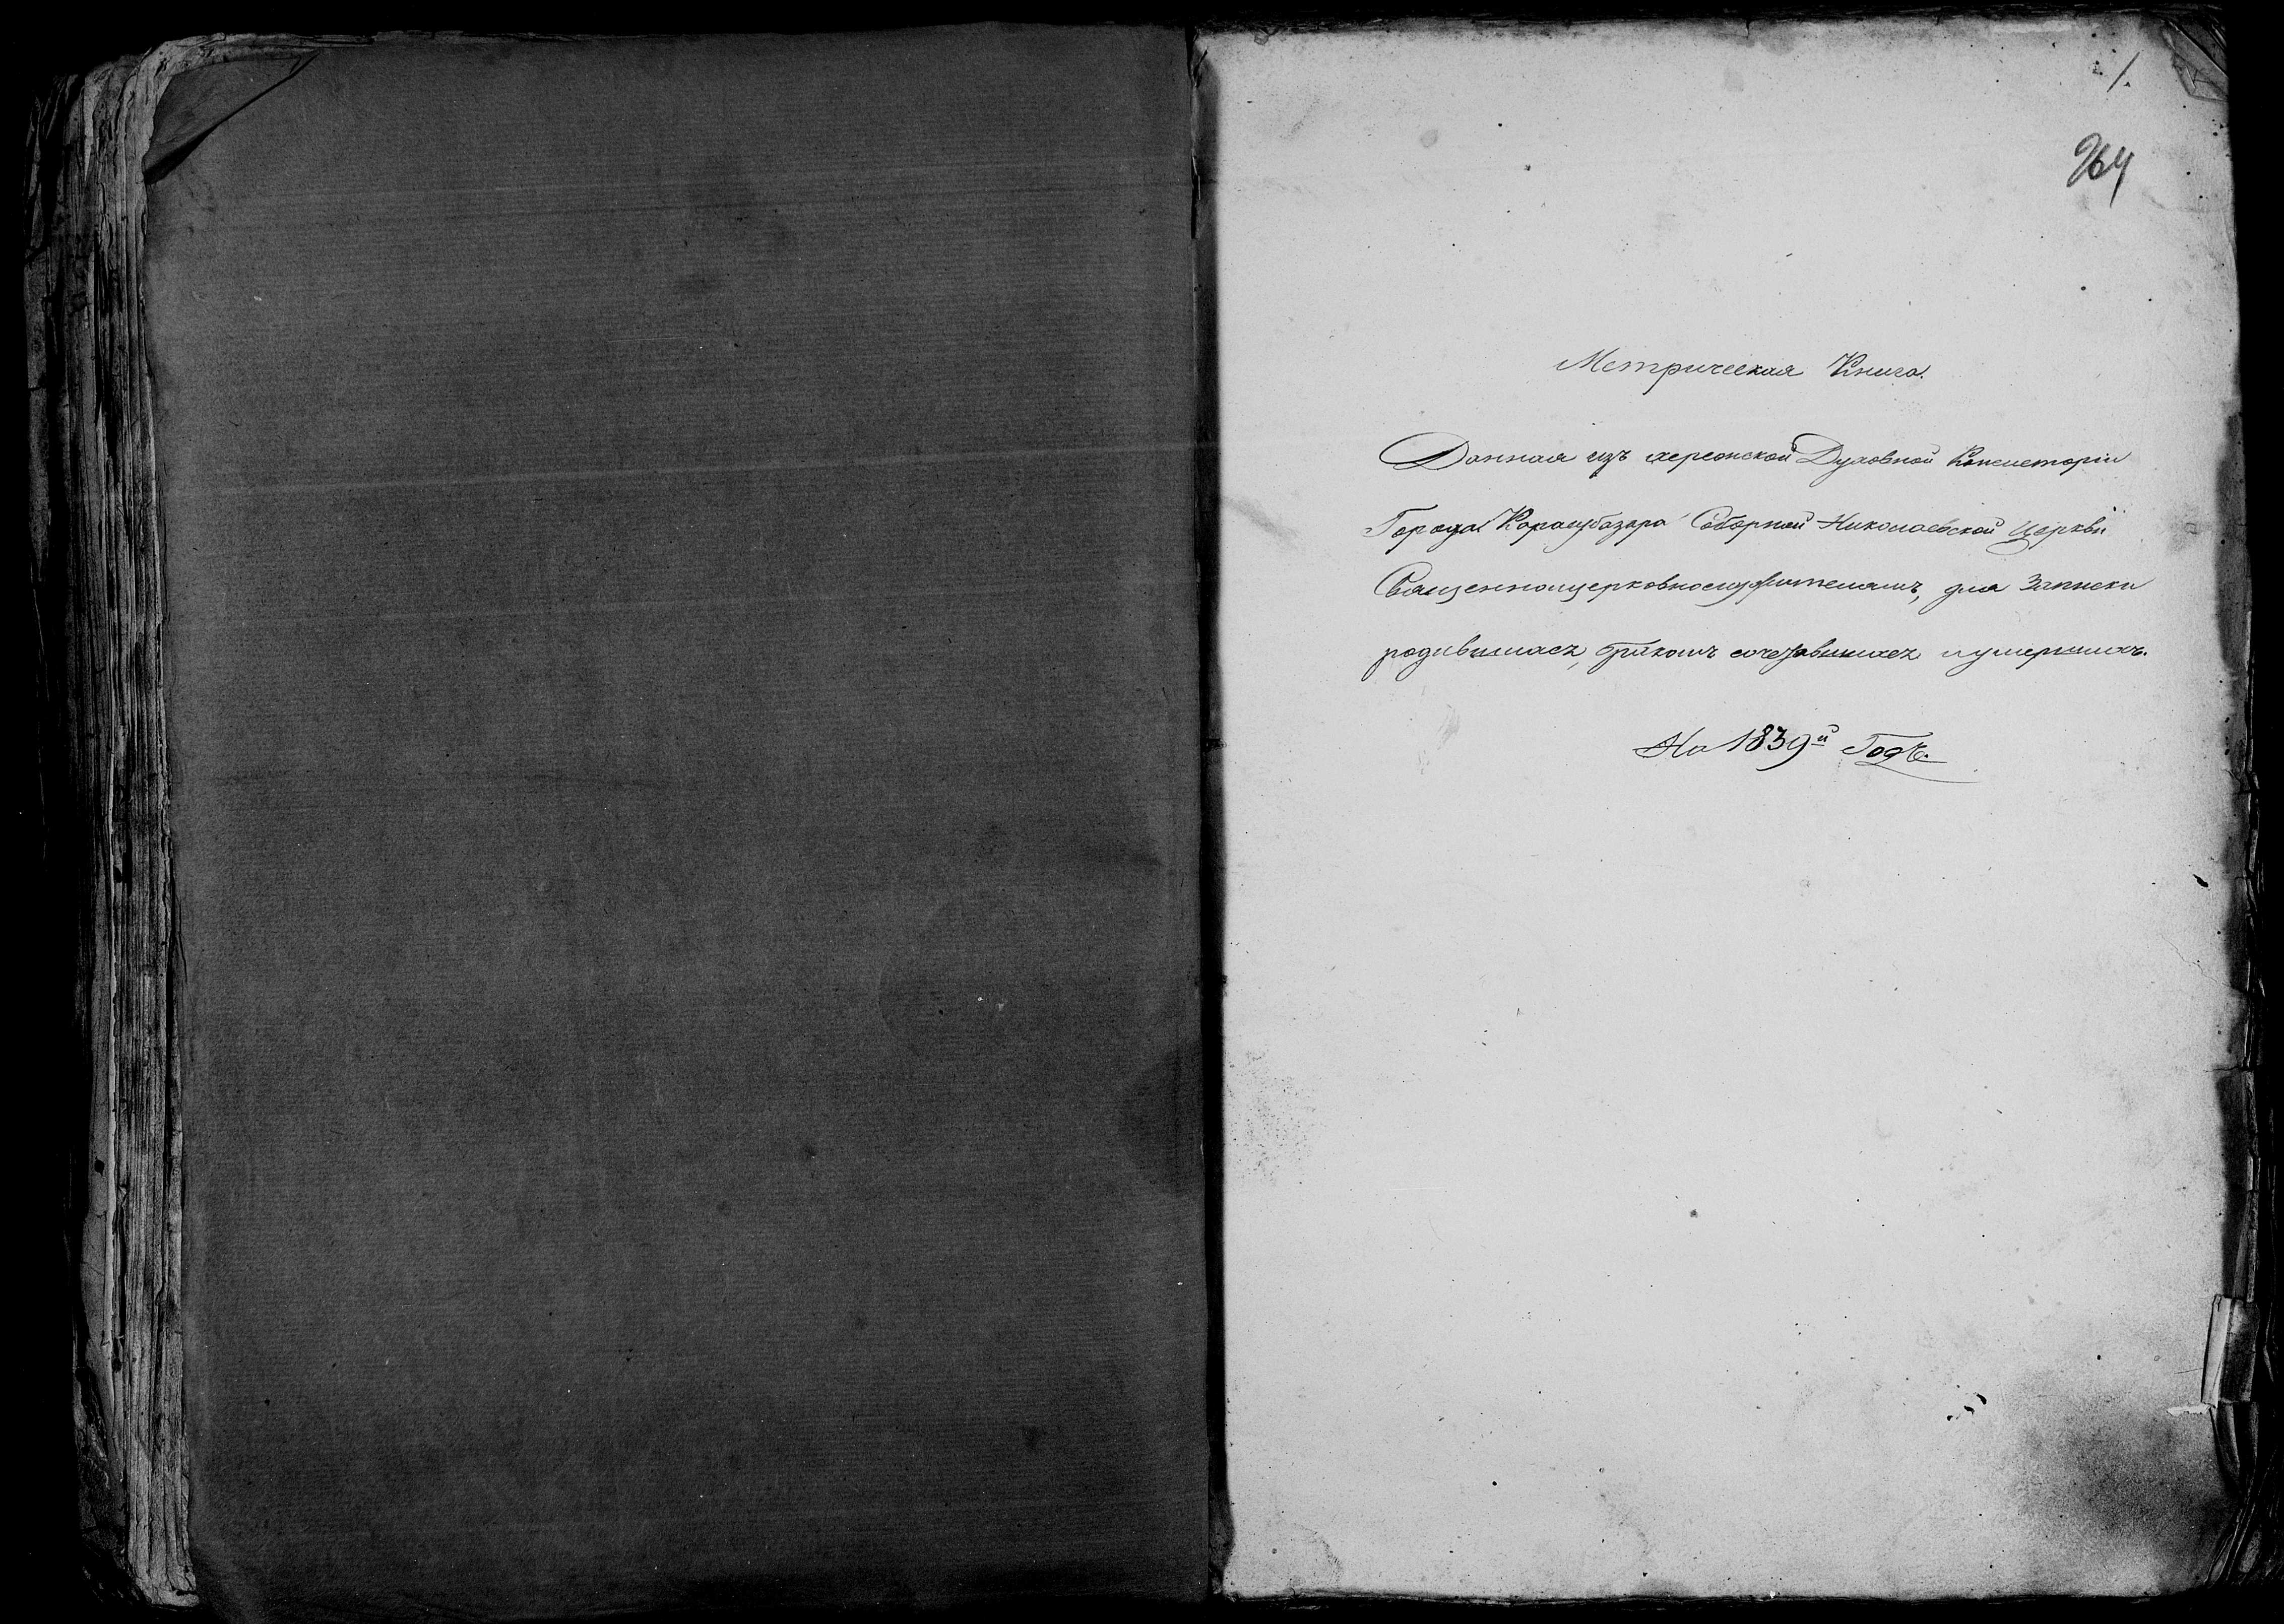 1.
264
Метрическая Книга.
Данная изъ херсонской Духовной Консисторіи
Города Карасубазара Соборной Николаевской Церкви
Священноцерковнослужителямъ, для записки
родившихся, бракомъ сочетавшихся и умершихъ.
На 1839й Годъ.